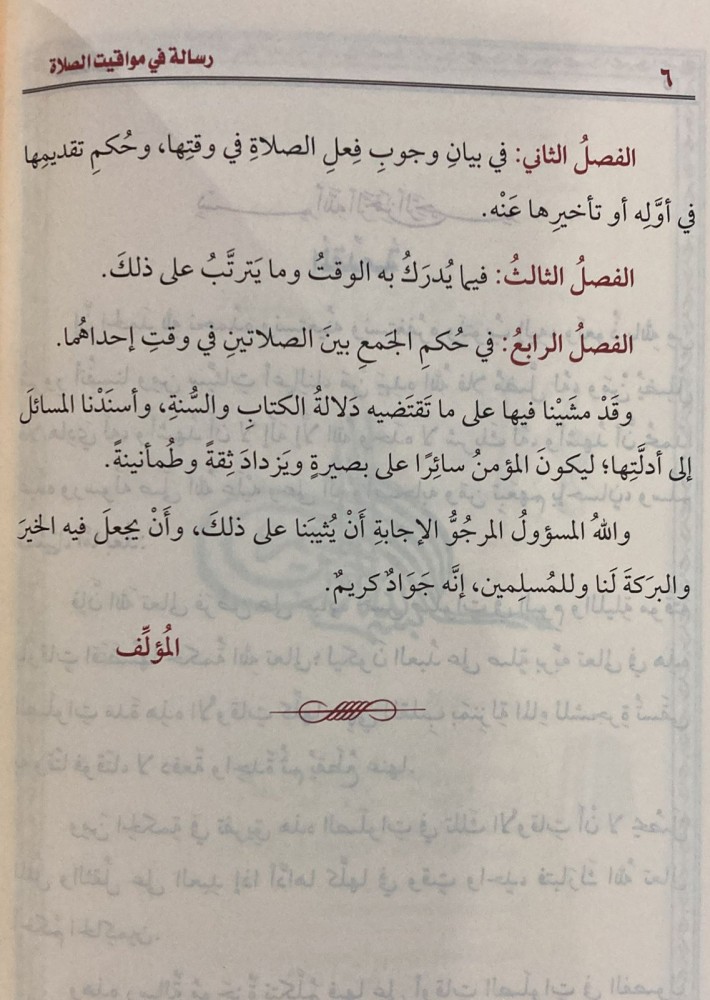 ٦ رسالة في مواقيت الصلاة
الفصلُ الثاني: في بيانِ وجوبِ فِعلِ الصلاةِ في وقتِها، وحُكمِ تقديمِها
في أوَّلِه أو تأخيرِها عَنْه.
الفصلُ الثالثُ: فيما يُدرَكُ به الوقتُ وما يَترتَّبُ على ذلكَ.
الفصلُ الرابعُ: في حُكمِ الجَمعِ بينَ الصلاتينِ في وقتِ إحداهُما.
وقَدْ مشَيْنا فيها على ما تَقتَضيه دَلالةُ الكتابِ والسُّنةِ، وأسنَدْنا المسائلَ
إلى أدلَّتِها؛ ليكونَ المؤمنُ سائِرًا على بصيرةٍ ويَزدادَ ثِقةً وطُمأنينةً.
واللهُ المسؤولُ المرجُوُّ الإجابةِ أَنْ يُثيبَنا على ذلكَ، وأَنْ يجعلَ فيه الخيرَ
والبرَكةَ لَنا وللمُسلِمين، إنَّه جَوَادٌ كريمٌ.
المُؤلِّف